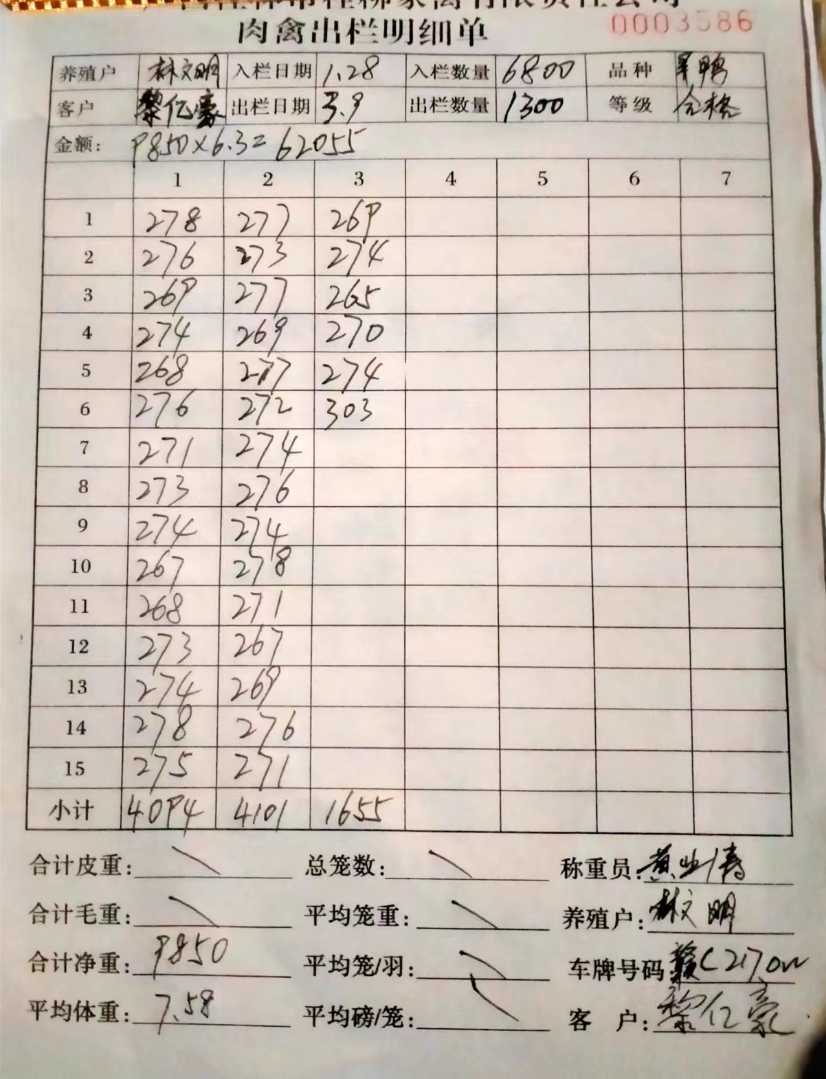 桂柳家禽有限责任公司
肉禽出栏明细单 0003586
养殖户 林文明 入栏日期 1.28 入栏数量 6800 品种 旱鸭
客户 黎亿豪 出栏日期 3.9 出栏数量 1300 等级 合格
金额: 9850×6.3=62055
1 2 3 4 5 6 7
1 278 277 269
2 276 273 274
3 269 277 265
4 274 269 270
5 268 277 274
6 276 272 303
7 271 274
8 273 276
9 274 274
10 267 278
11 268 271
12 273 267
13 274 269
14 278 276
15 275 271
小计 4094 4101 1655
合计皮重: 总笼数: 称重员:
合计毛重: 平均笼重: 养殖户: 林文明
合计净重: 9850 平均笼/羽: 车牌号码 赣C2170W
平均体重: 7.58 平均磅/笼: 客 户: 黎亿豪